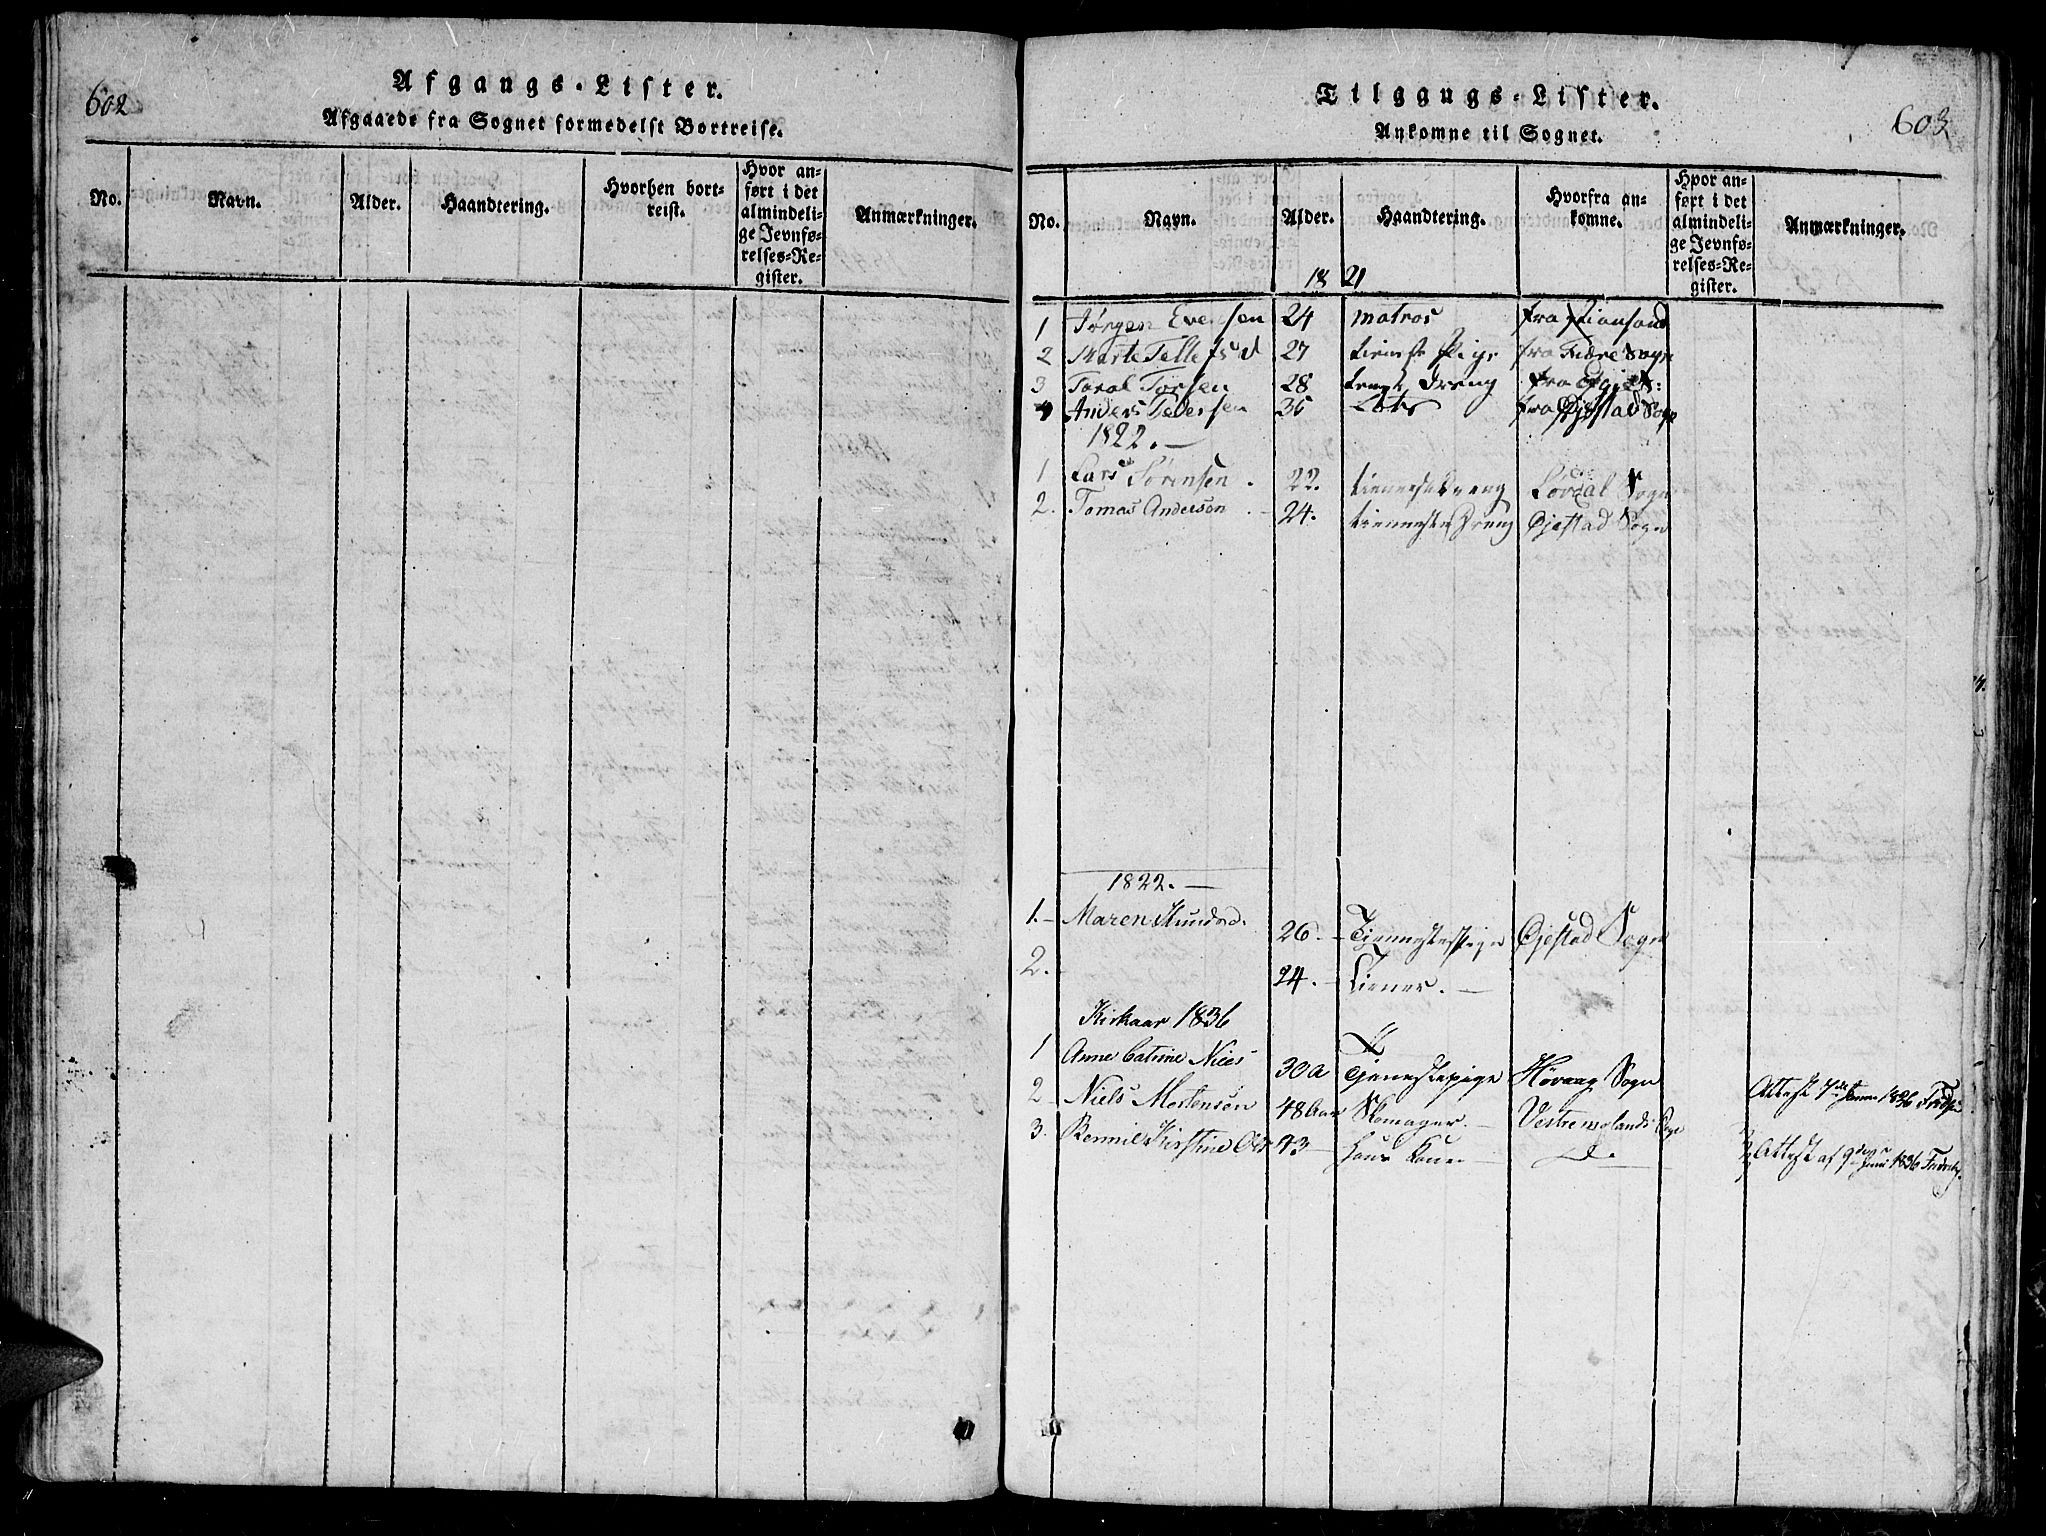 602
Afgangs-Lister.
Afgaaede fra Sognet formedelst Bortreise.
No.
Navn.
Alder.
Haandtering.
Hvorhen bort-
reist.
Hvor an-
ført i det
almindeli-
ge Jevnfø-
relses-Re-
gister.
Anmærkninger.
Tilgangs-Lister.
Ankomne til Sognet.
603
No.
Navn.
Alder.
Haandtering.
Hvorfra an-
komne.
Hvor an-
ført i det
almindeli-
ge Jevnfø-
relses-Re-
gister.
Anmærkninger.
1821
1 Jørgen Evensen 24 matros fra Xtiansand
2 Marte Tellefsd 27 tieneste Pige fra Fiære Sogn
3 Taral Torsen 28 dreng fra
4 Anders Pedersen 36 Lots fra Øjestad Sogn
1822.
1 Lars Sørensen. 22. tieneste dreng Sogn
2. Tomas Andersen 24. tienneste Dreng Øjestad Sogn
1822.
1. Maren Knudsd. 26. Tjennestepige Øjestad Sogn
2. 24. Tiener.
Kirkaar 1836
1 Anne Catrine Niels 30 a Tjenestepige Høvaag Sogn Attest 1836
2 Niels Mortensen 48 Aar Skomager. Vestre Sogn
3. Kirstine 43 hans Kone do Attest af 9 Juni 1836